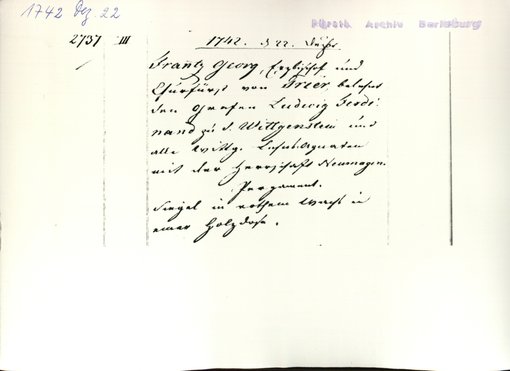 1742 Dez 22
Fürstl. Archiv Berleburg
2737 III
1742. d 22. Decbr.
Frantz Georg, Erzbischof und
Churfürst von Trier, belehnt
den Grafen Ludwig Ferdi
nand zu S. Wittgenstein und
alle Wittg. Lehns-Agnaten
mit der Herrschaft Neumagen.
Pergament.
Siegel in rothem Wachs in
einer Holzdose.